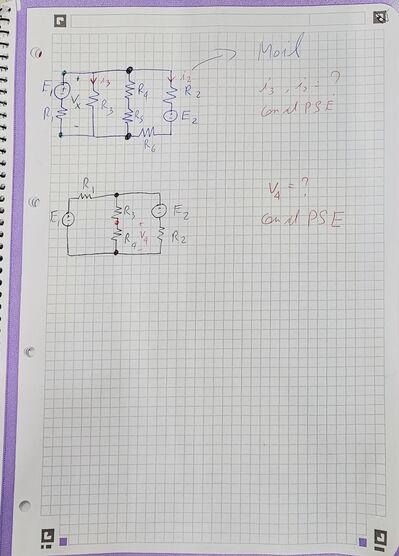 Moil
E1
Vx
R1
i3
R3
R4
R5
R6
i2
R2
E2
i3, i2 = ?
con il PSE
R1
E1
R3
R4
V4
E2
R2
V4 = ?
con il PSE